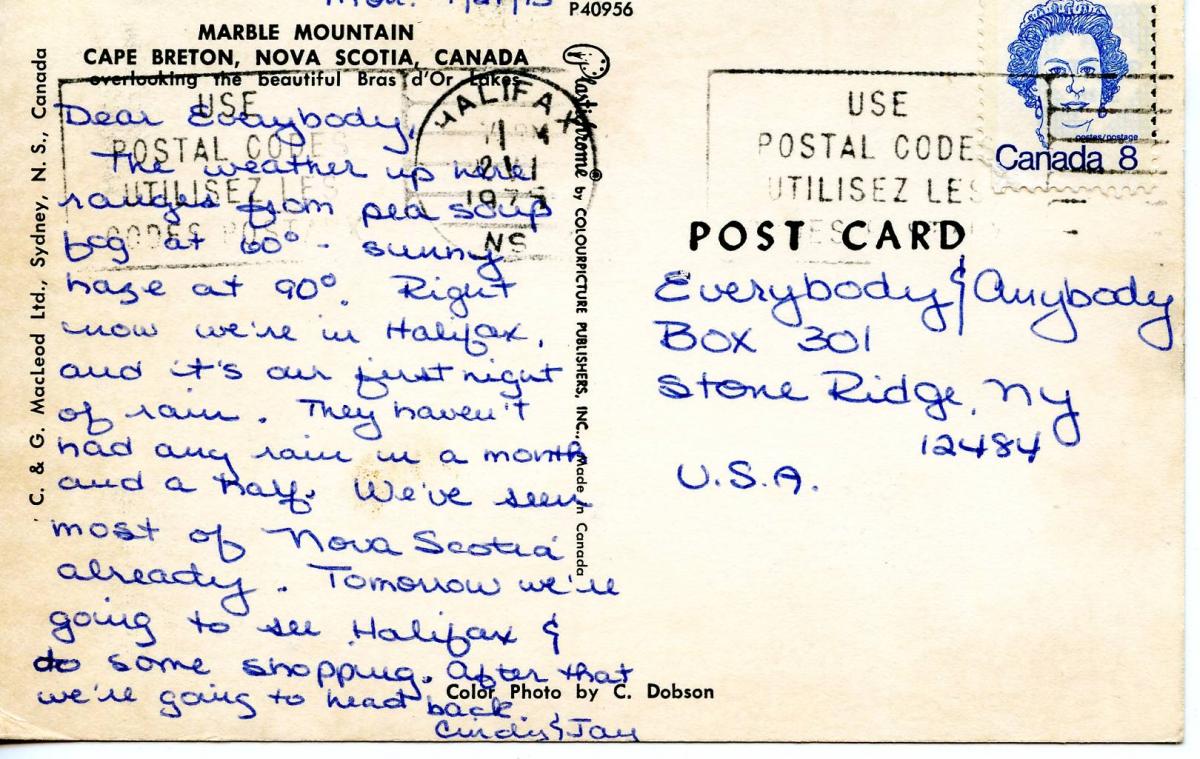 Mon. 7/21/75
P40956
MARBLE MOUNTAIN
CAPE BRETON, NOVA SCOTIA, CANADA
overlooking the beautiful Bras d'Or Lakes
C. & G. MacLeod Ltd., Sydney, N. S., Canada
Dear Everybody,
The weather up here
ranges from pea soup
fog at 60° - sunny
haze at 90°. Right
now we're in Halifax,
and it's our first night
of rain. They haven't
had any rain in a month
and a half. We've seen
most of Nova Scotia
already. Tomorrow we're
going to see Halifax &
do some shopping. After that
we're going to head back.
Cindy & Jay
Color Photo by C. Dobson
Plastichrome® by COLOURPICTURE PUBLISHERS, INC., Made in Canada
USE
POSTAL CODES
UTILISEZ LES
CODES POST
HALIFAX
21
1975
NS
USE
POSTAL CODE
UTILISEZ LES
postes/postage
Canada 8
POST CARD
Everybody & Anybody
Box 301
Stone Ridge, NY
12484
U.S.A.